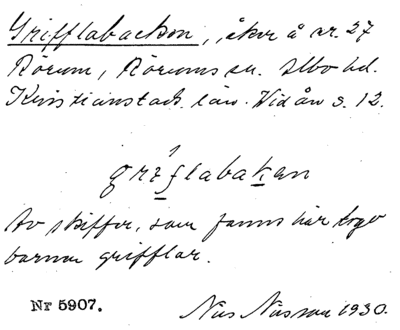 Grifflabacken, åker å nr. 27
Rörum, Rörums sn. Albo hd.
Kristianstads län. Vid ån s. 12.
griflabakan
Av skiffer, som fanns här togo
barnen grifflar.
Nr 5907.
Nils Nilsson 1930.